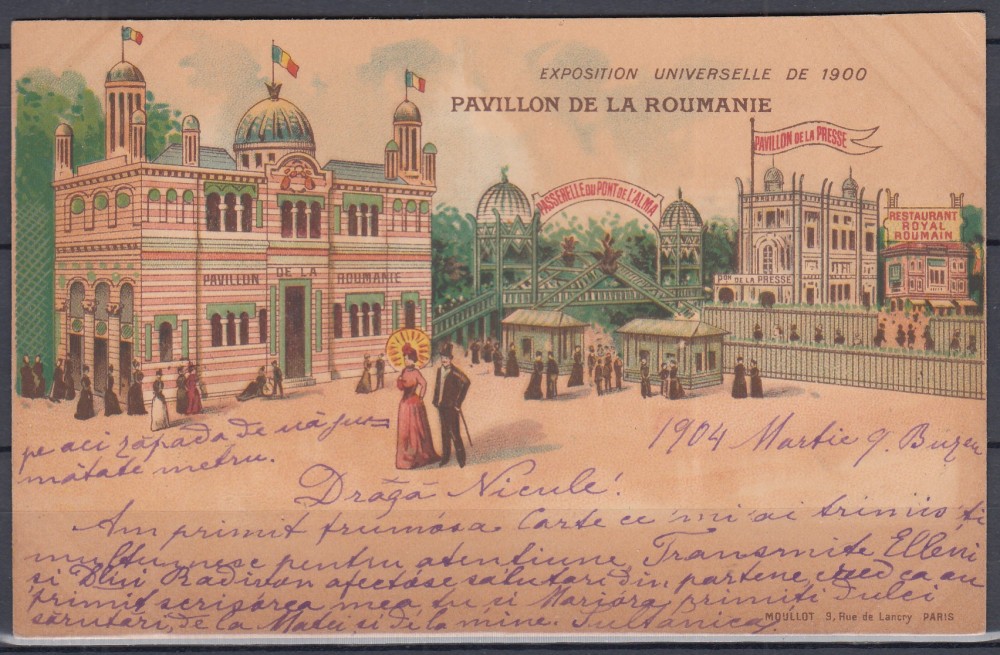 EXPOSITION UNIVERSELLE DE 1900
PAVILLON DE LA ROUMANIE
PAVILLON DE LA PRESSE
PASSERELLE DU PONT DE L'ALMA
RESTAURANT
ROYAL
ROUMAIN
PAVILLON DE LA ROUMANIE
PON DE LA PRESSE
pe aci zăpada de uă ju=
mătate metru.
1904 Martie 9. Buzeu
Dragă Nicule!
Am primit frumósa Carte ce mi ai trimis ti
multumesc pentru atentiune, Transmite Elleni
si Dlui Radivon afectóse salutari din partene, cred ca au
primit scrisórea mea, tu si Marióra primiti dulci
sărutari, de la Matei si de la mine. Sultanica
MOULLOT 9, Rue de Lancry PARIS